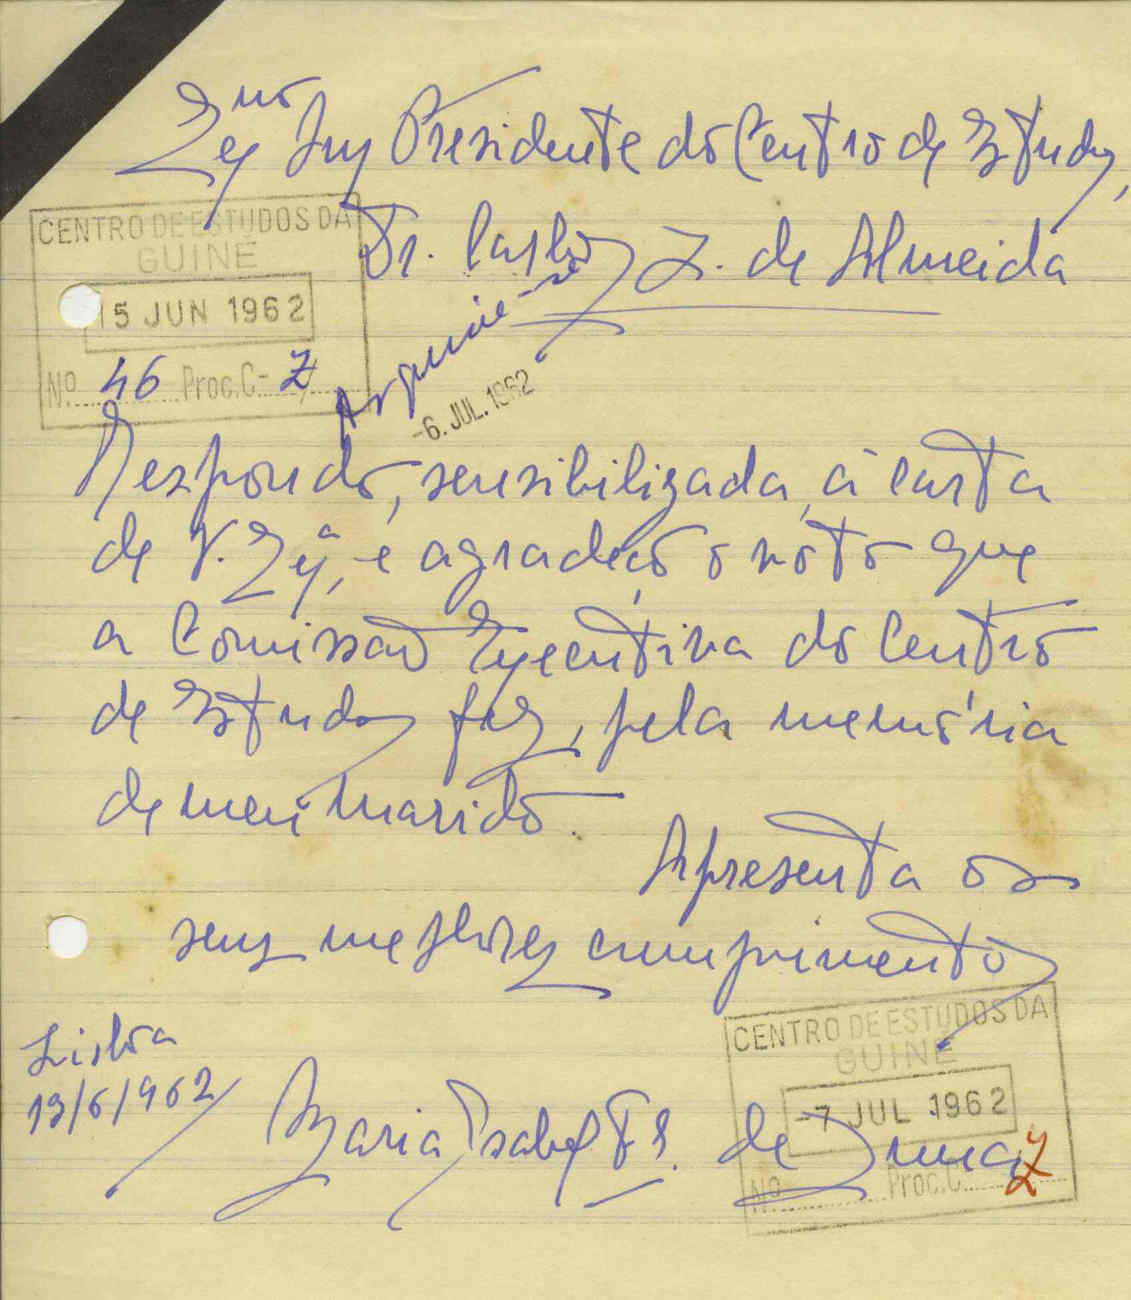 Exmo
Snr Presidente do Centro de Estudos,
Dr. Carlos J. de Almeida
CENTRO DE ESTUDOS DA
GUINÉ
15 JUN 1962
Nº 46 Proc. C- Z
Arquive-se
-6. JUL. 1962
Respondo, sensibilizada, à carta
de V. Exª, e agradeço o voto que
a Comissão Executiva do Centro
de Estudos fez, pela memória
de meu marido.
Apresenta os
seus melhores cumprimentos
Lisboa
13/6/962
Maria Isabel
de
CENTRO DE ESTUDOS DA
GUINÉ
-7 JUL 1962
Nº Proc. C-